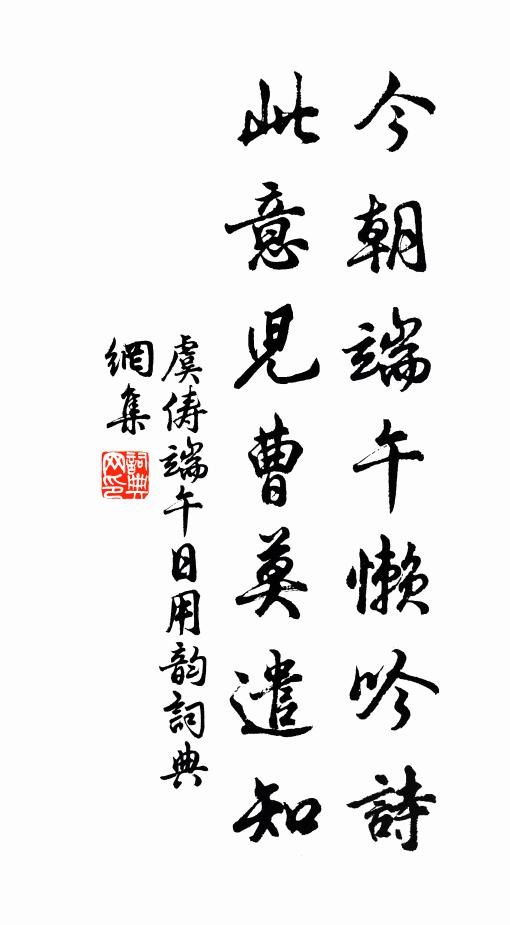 今朝端午懶吟詩
此意兒曹莫遣知
虞儔端午日用韵詞典
網集
詞典網印